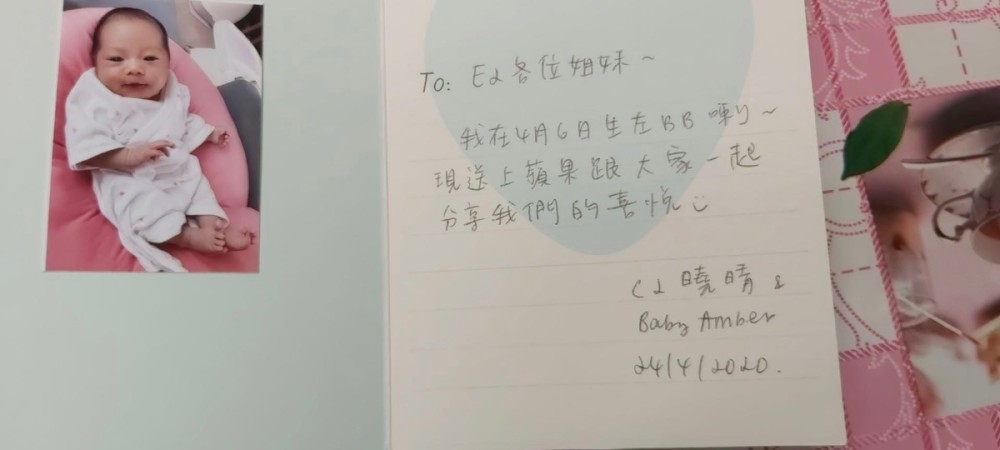 To: E2各位姐妹~
我在4月6日生左BB喇~
現送上蘋果跟大家一起
分享我們的喜悅
C2 曉晴 &
Baby Amber
24/4/2020.